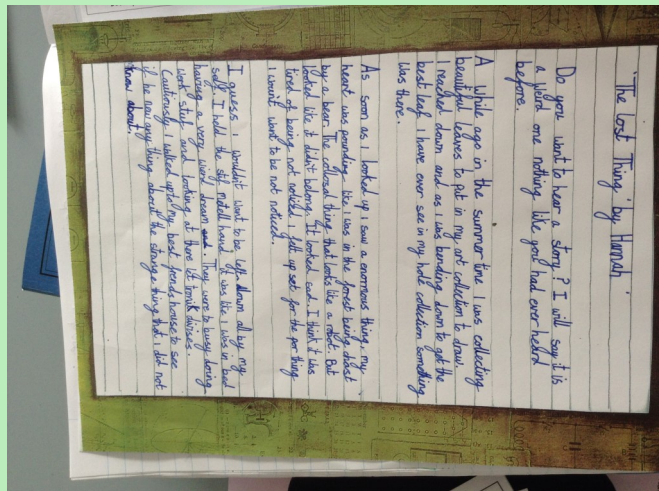 'The Lost Thing' by Hannah
Do you want to hear a story? I will say it is
a weird one nothing like you had ever heard
before.
A while ago in the summer time I was collecting
beautiful leaves to put in my art collection to draw.
I reached down and as I was bending down to get the
best leaf I have ever see in my hold collection something
was there.
As soon as I looked up I saw a enormous thing my
heart was pounding like I was in the forest being chast
by a bear. The collosal thing that looks like a robot. But
looked like it didn't belong. It looked sad. I think it was
tired of being not noticed. I felt up set for the por thing
I woun't want to be not noticed.
I guess I wouldn't want to be left down all by my
self. I held the stif mettell hand. It was like I was in bed
having a very weird dream. They were to busy doing
work stuf and looking at there
Cautiously I walked up to my best frends house to see
if he now any thing about the strange thing that I did not
know about.